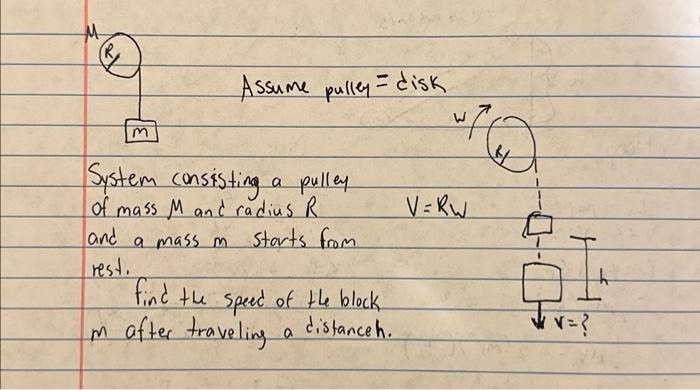 M
R
m
Assume pulley = disk
W
R
System consisting a pulley
of mass M and radius R
and a mass m starts from
rest.
find the speed of the block
m after traveling a distance h.
V = RW
h
v = ?